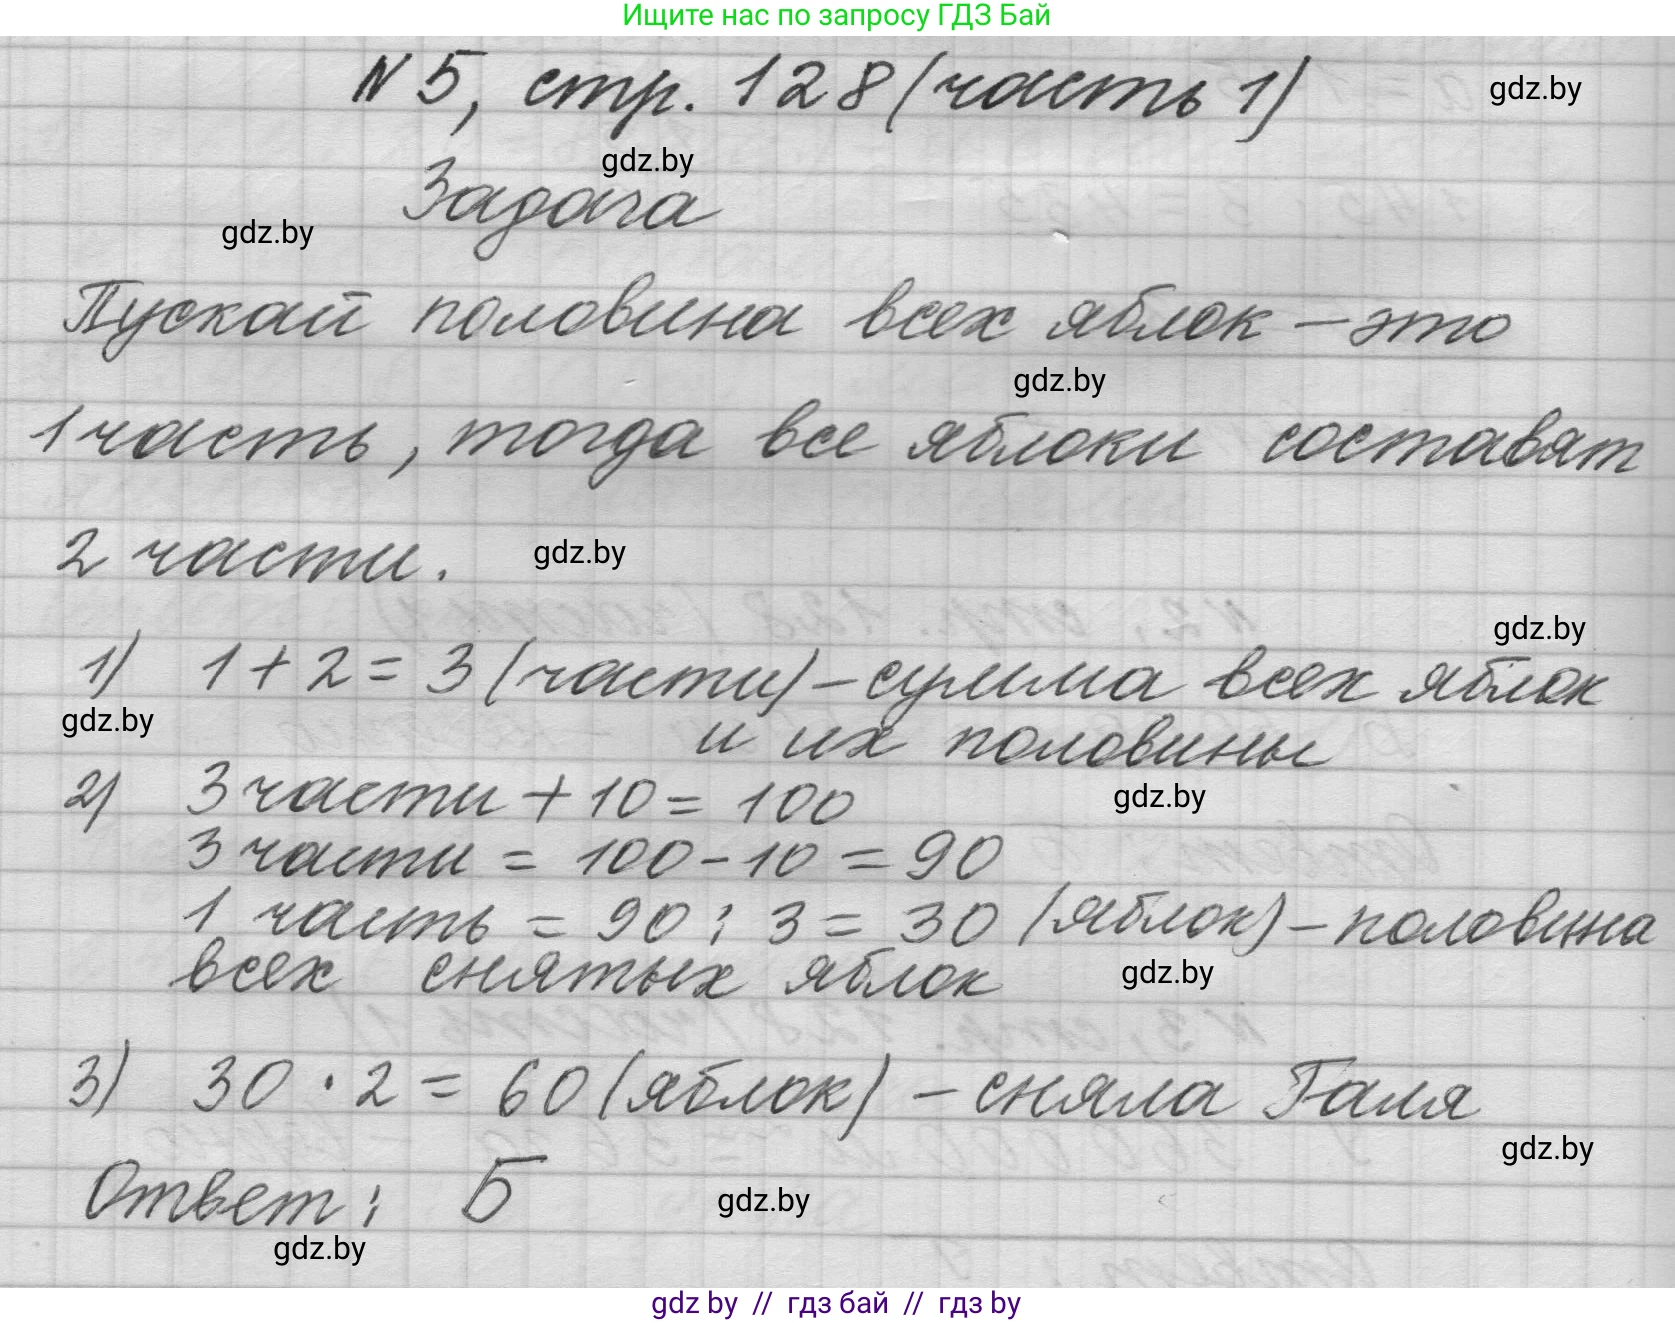 Ищите нас по запросу ГДЗ Бай
N 5, стр. 128 (часть 1)
gdz.by
gdz.by
Задача
gdz.by
Пускай половина всех яблок – это
gdz.by
1 часть, тогда все яблоки составят
2 части.
gdz.by
gdz.by
1) 1 + 2 = 3 (части) – сумма всех яблок
gdz.by
и их половины
2) 3 части + 10 = 100
gdz.by
3 части = 100 - 10 = 90
1 часть = 90 : 3 = 30 (яблок) – половина
всех снятых яблок
gdz.by
3) 30 · 2 = 60 (яблок) – сняла Галя
gdz.by
Ответ: Б
gdz.by
gdz.by
gdz by // гдз бай // гдз by